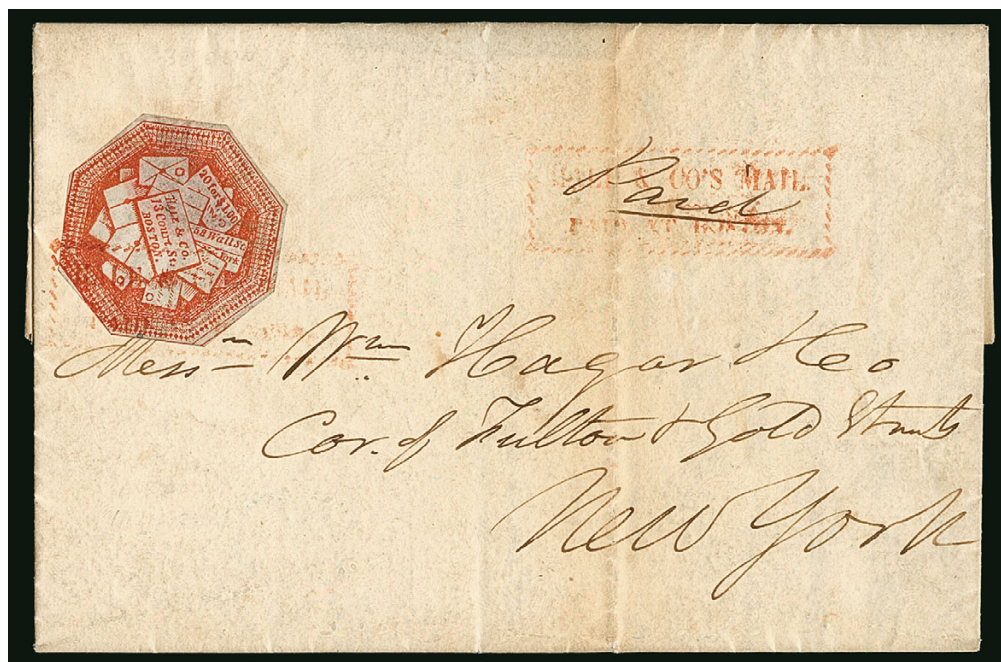 20 for $1.00
Hale & Co.
13 Court. St.
BOSTON.
58 Wall St
York
& CO'S MAIL.
Paid
PAID AT BOSTON.
Messrs Wm Hagar & Co
Cor. of Fulton & Gold Streets
New York